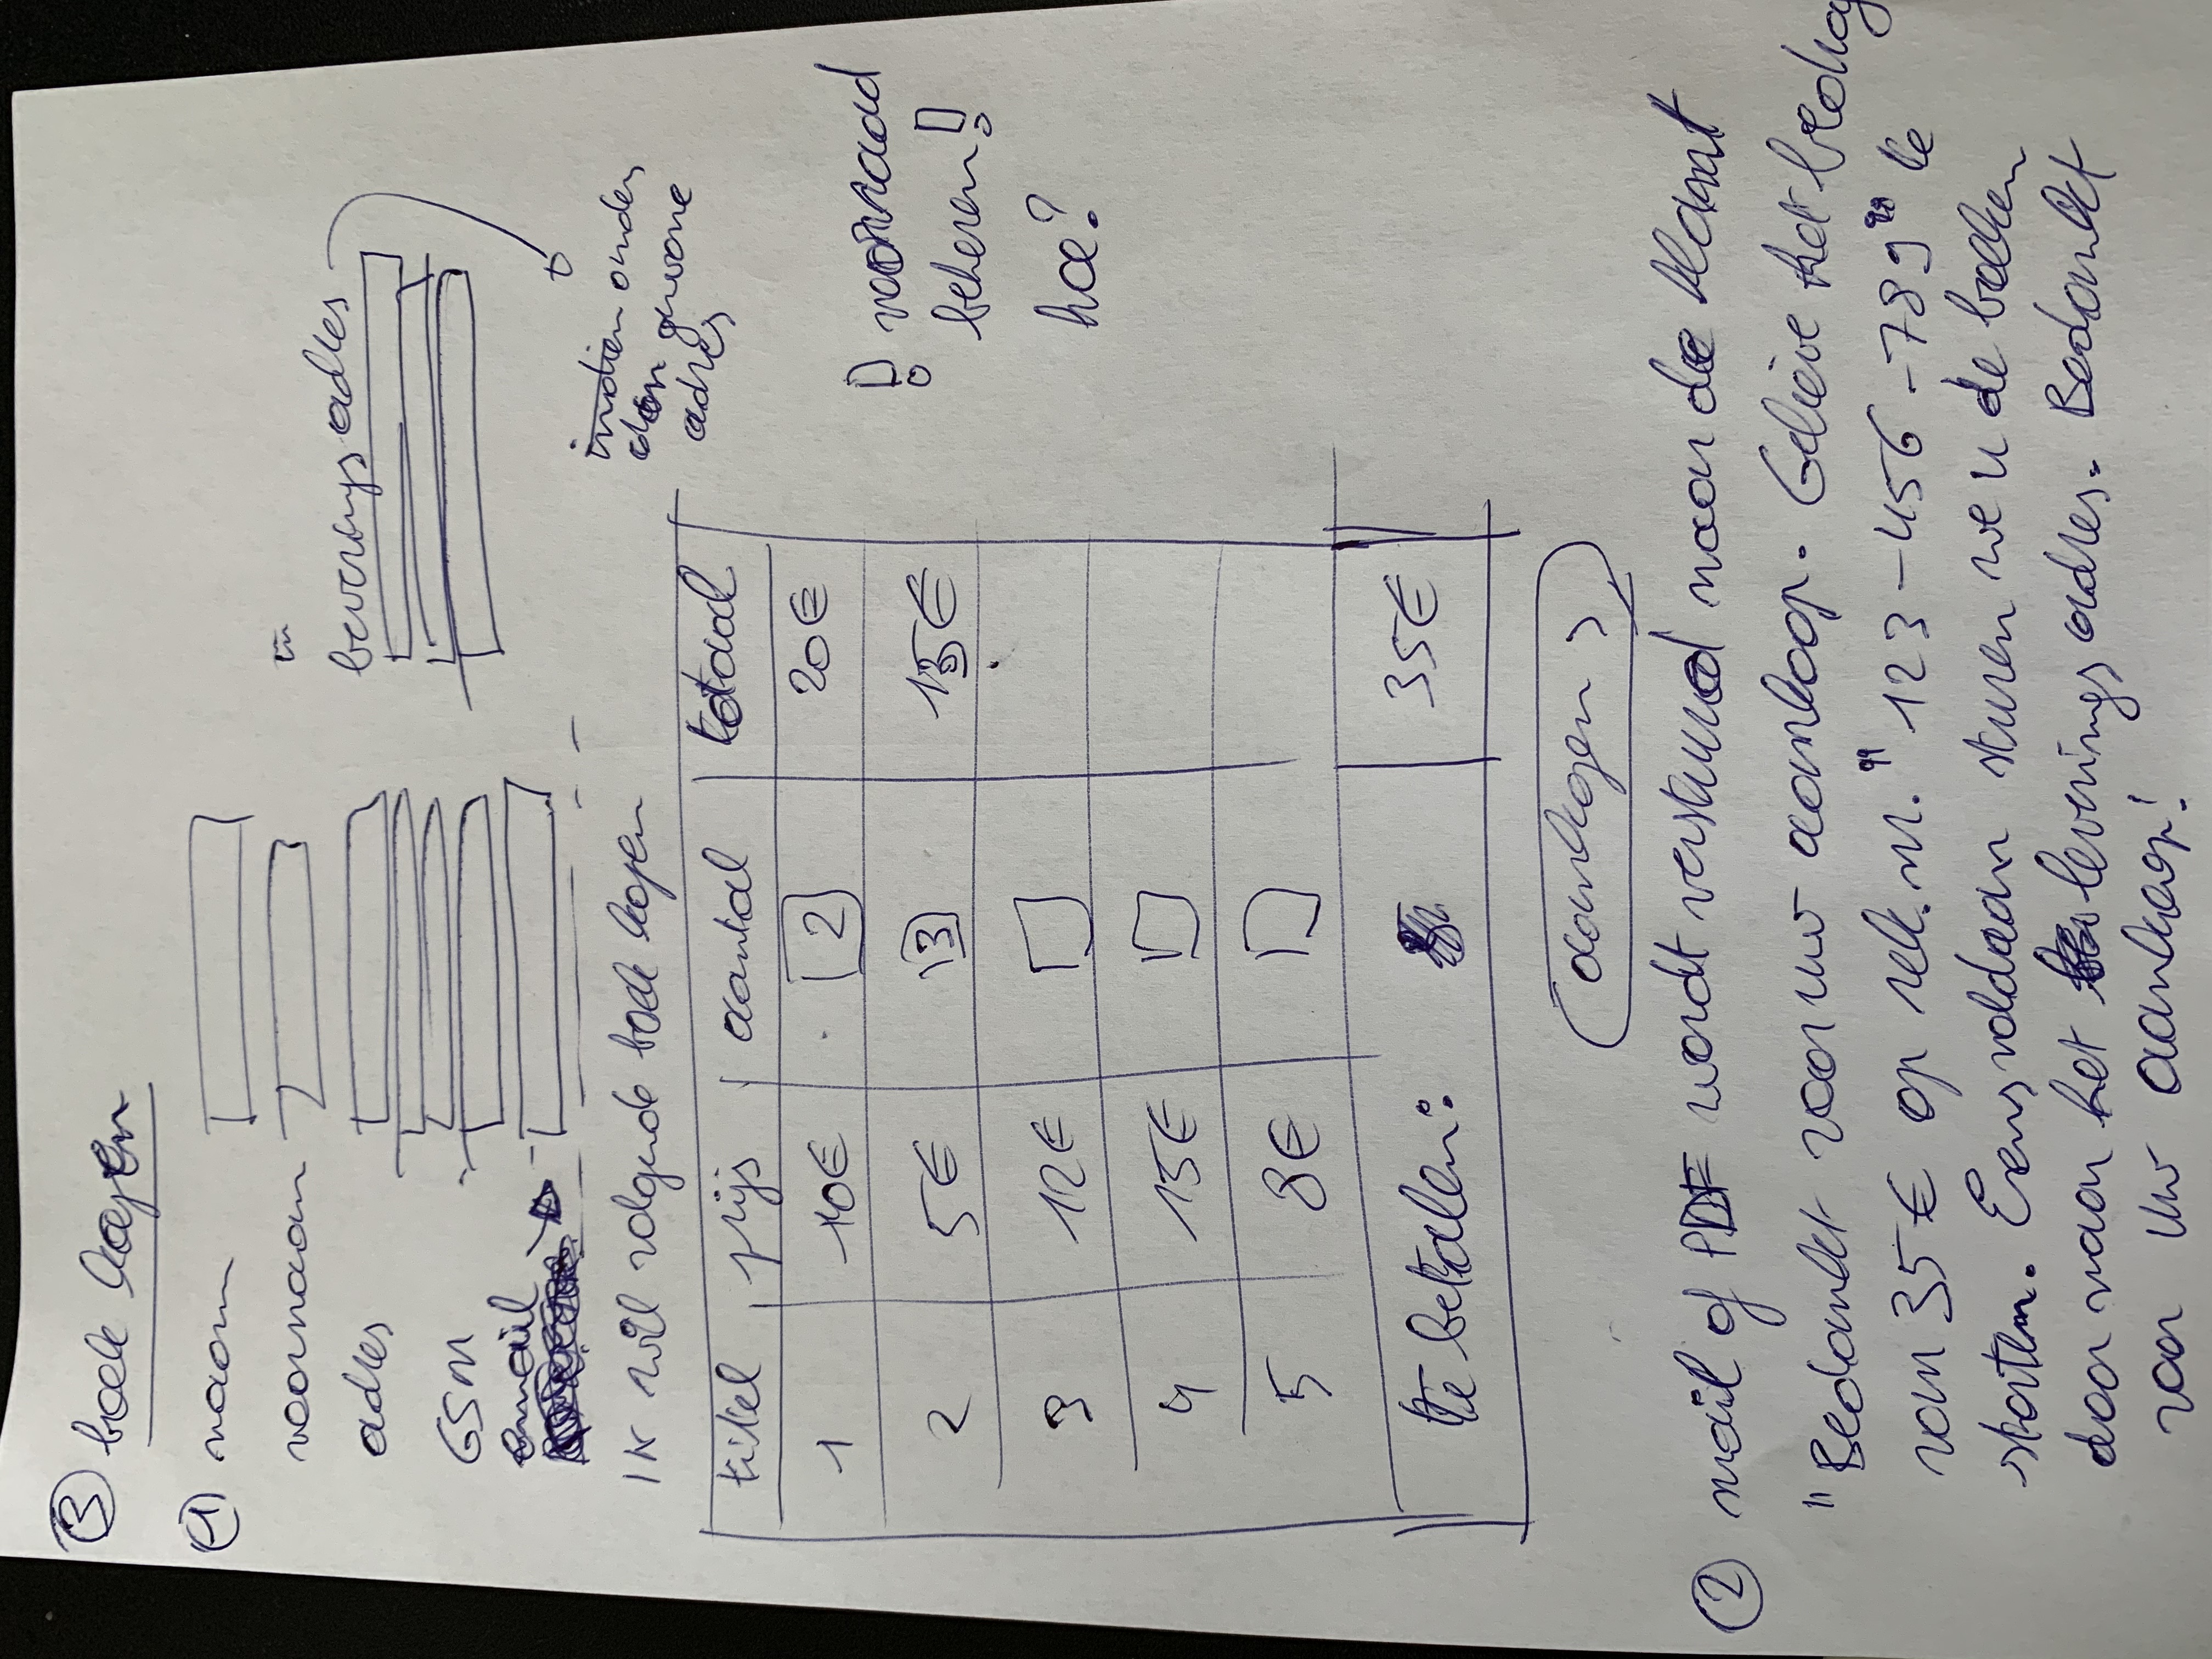 ③ boek kopen
① naam
voornaam
adres
leveringsadres
GSM
email
indien anders
dan gewone
adres
IK wil volgende boek kopen
titel prijs aantal totaal
1 10€ 2 20€
2 5€ 3 15€
3 12€
4 15€
5 8€
te betalen: 35€
! voorraad
beheren!
hoe?
aankopen >
② mail of PDF wordt verstuurd naar de klant
"Bedankt voor uw aankoop. Gelieve het bedrag
van 35€ op rek.nr. "123-456-789" te
storten. Eens voldaan sturen we u de boeken
door naar het leverings adres. Bedankt
voor uw aankoop!